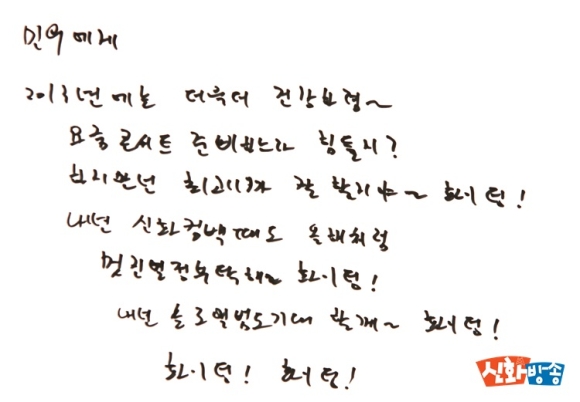 민우에게
2013년에는 더욱더
요즘 콘서트 준비하느라 힘들지?
하지만 넌 최고니까 잘 할거야~ 화이팅!
내년 신화컴백때도 올해처럼
멋진열정부탁해~ 화이팅!
내년 솔로앨범도기대 할게~ 화이팅!
화이팅! 화이팅!
신화방송